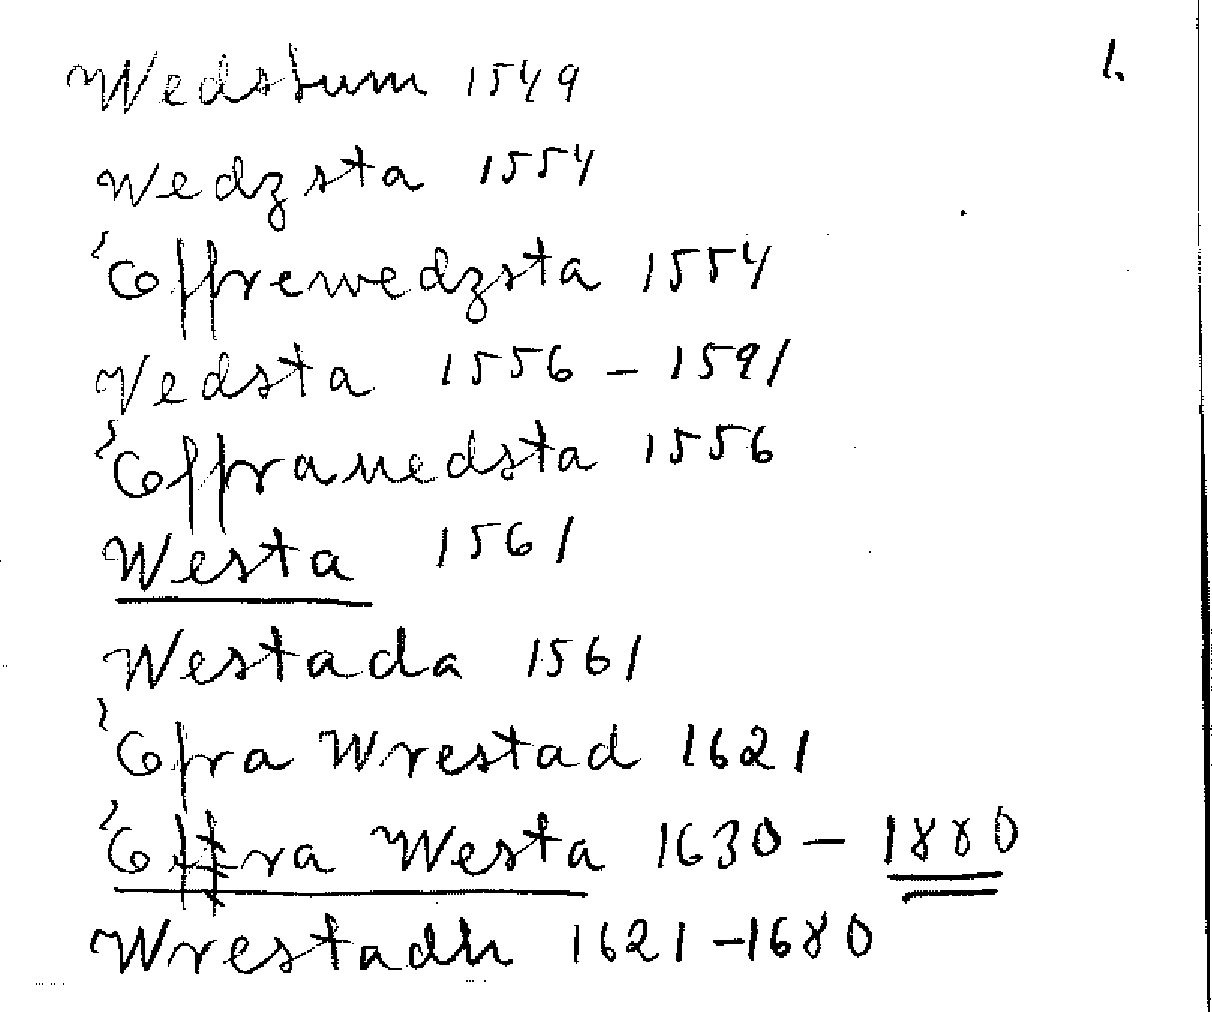 1.
Wedstum 1549
Wedzsta 1554
Öffrewedzsta 1554
Vedsta 1556 - 1591
Öffrauedsta 1556
Westa 1561
Westada 1561
Öfra Wrestad 1621
Öffra Westa 1630 - 1880
Wrestadh 1621 - 1680